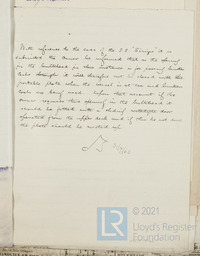 With reference to the case of the S.S. "
submitted the Owner has informed that as the opening
in the bulkhead in this instance is for passing timber
it will therefore not be closed with the
portable plate when the vessel is at sea and bunker
coals are being used. Upon that account if the
owner requires this opening in the bulkhead it
should be fitted with a sliding watertight door
operated from the upper deck and if this be not done
the plate should be riveted up.
© 2021
LR
Lloyd's Register
Foundation